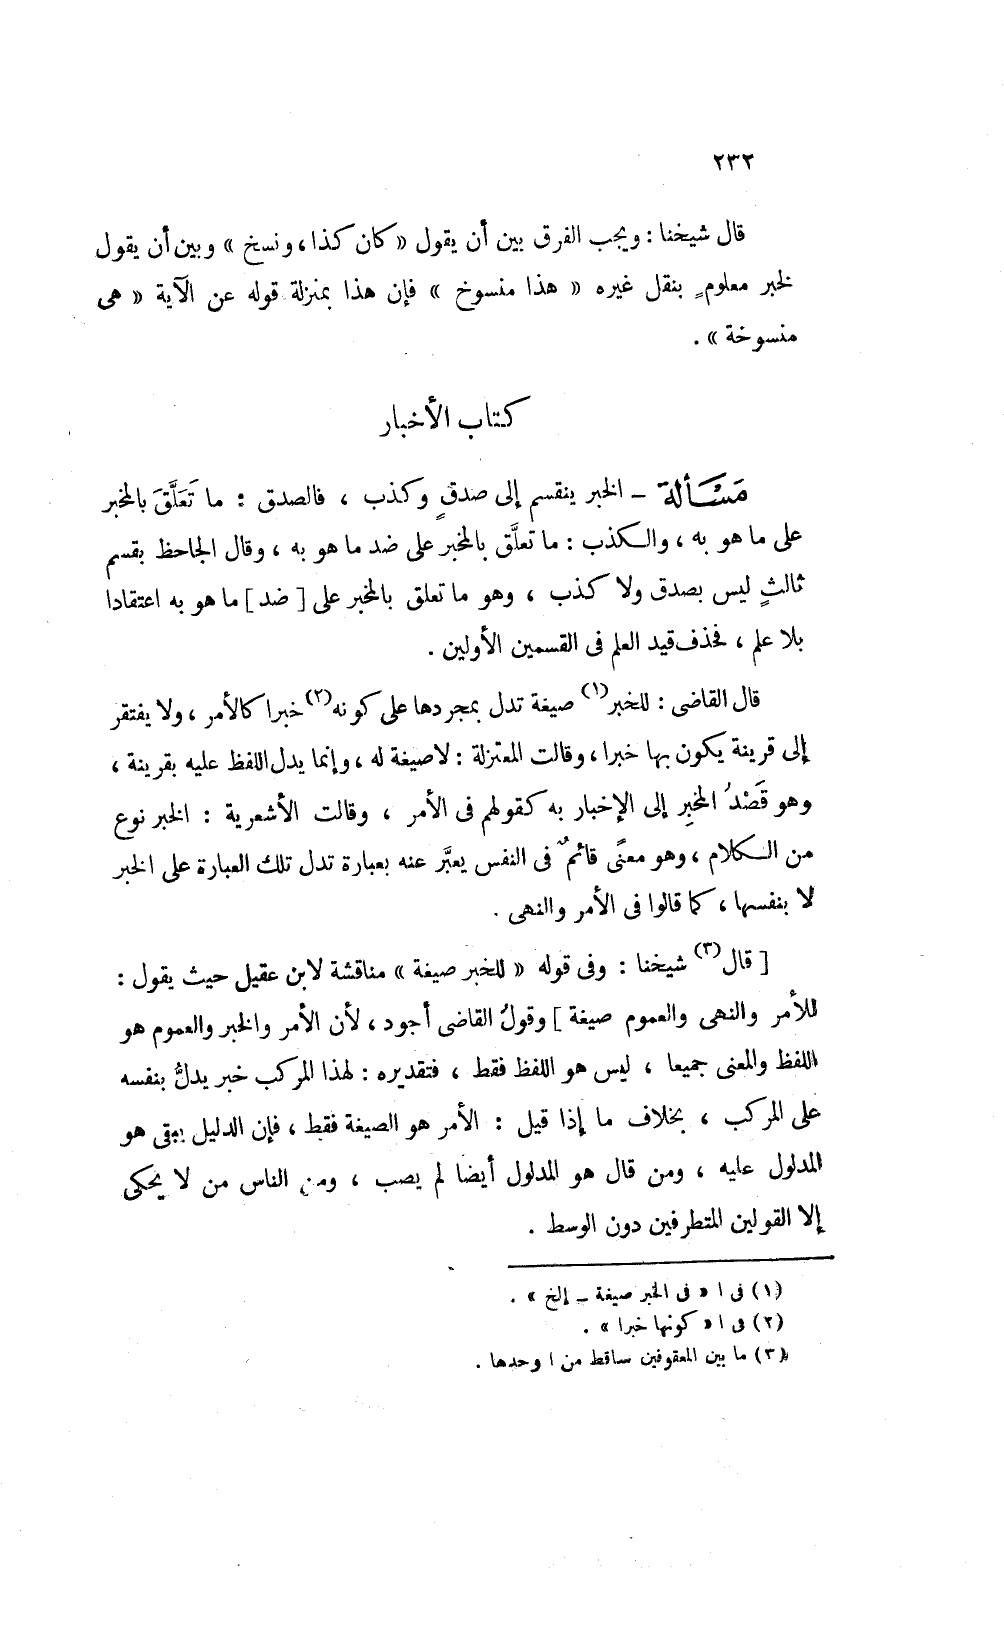 ٢٣٢
قال شيخنا : ويجب الفرق بين أن يقول « كان كذا ، ونسخ » وبين أن يقول
لخبر معلومٍ بنقل غيره « هذا منسوخ » فإن هذا بمنزلة قوله عن الآية « هى
منسوخة » .
كتاب الأخبار
مَسْألة – الخبر ينقسم إلى صدقٍ وكذب ، فالصدق : ما تَعَلَّقَ بالمخبر
على ما هو به ، والكذب : ما تعلَّق بالمخبر على ضد ما هو به ، وقال الجاحظ بقسم
ثالثٍ ليس بصدق ولا كذب ، وهو ما تعلق بالمخبر على [ ضد ] ما هو به اعتقادا
بلا علم ، فحذف قيد العلم فى القسمين الأولين .
قال القاضى : للخبر(١) صيغة تدل بمجردها على كونه(٢) خبرا كالأمر ، ولا يفتقر
إلى قرينة يكون بها خبرا ، وقالت المعتزلة : لا صيغة له ، وإنما يدل اللفظ عليه بقرينة ،
وهو قَصْدُ المخبِر إلى الإخبار به كقولهم فى الأمر ، وقالت الأشعرية : الخبر نوع
من الكلام ، وهو معنًى قائمٌ فى النفس يعبَّر عنه بعبارة تدل تلك العبارة على الخبر
لا بنفسها ، كما قالوا فى الأمر والنهى .
[ قال(٣) شيخنا : وفى قوله « للخبر صيغة » مناقشة لابن عقيل حيث يقول :
للأمر والنهى والعموم صيغة ] وقولُ القاضى أجود ، لأن الأمر والخبر والعموم هو
اللفظ والمعنى جميعا ، ليس هو اللفظ فقط ، فتقديره : لهذا المركب خبر يدلُّ بنفسه
على المركب ، بخلاف ما إذا قيل : الأمر هو الصيغة فقط ، فإن الدليل يبقى هو
المدلول عليه ، ومن قال هو المدلول أيضا لم يصب ، ومن الناس من لا يحكى
إلا القولين المتطرفين دون الوسط .
(١) فى ا « فى الخبر صيغة – إلخ » .
(٢) فى ا « كونها خبرا » .
(٣) ما بين المعقوفين ساقط من ا وحدها .